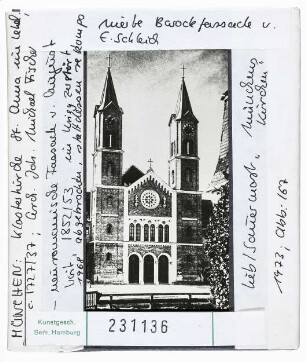 MÜNCHEN: Klosterkirche St. Anna im Lehel
c. 1727/37; Arch. Joh. Michael Fischer
- neuromanische Fassade v. August
Voit 1852/53 im Krieg zerstört
1968 abgebrochen, stattdessen rekonpo
nierte Barockfassade v.
E. Schleich
Lieb/Sauermost: Münchens
Kirchen
1973; Abb. 167
Kunstgesch.
Sem. Hamburg
231136